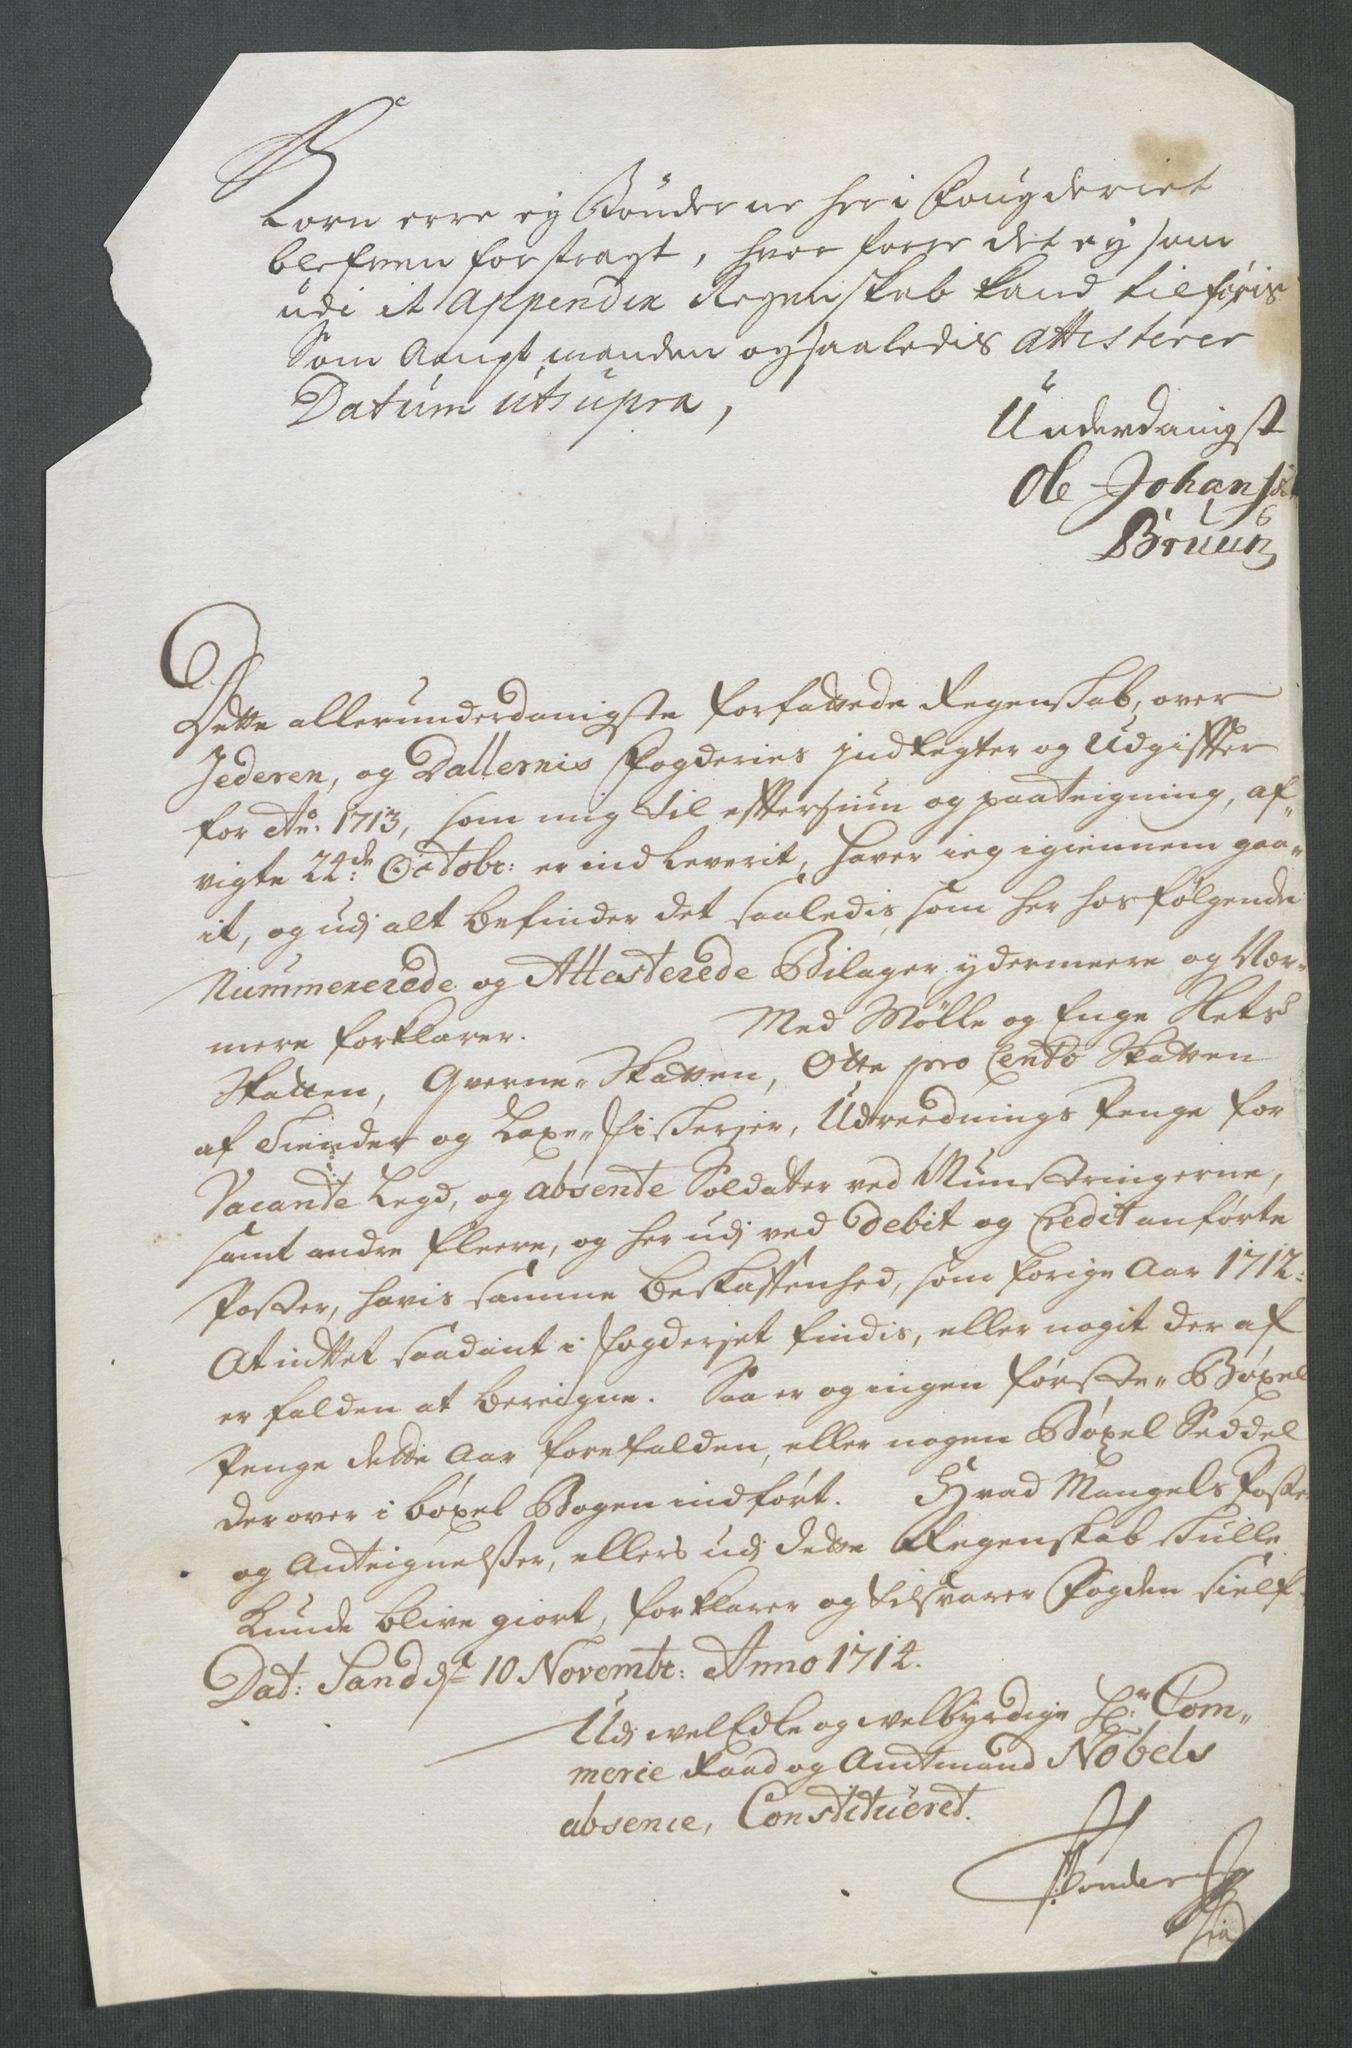 Korn erre ey Bønderne her i Fougderiet
blefven forstragt, hvor forre det ey som
udi it Appendix Regenskab kand tilføris
Som Ampt manden og saaledis attesterer
Datum ut supra,
Underdanigst
Ole Johansen
Bruun
Dette allerunderdanigste forfattede Regenskab, over
Jederen, og Dallernis Fogderies jndtegter og Udgiffter
for Ao: 1713, som mig til efftersiun og paateigning, af„
vigte 22de Octobr: er ind leverit, haver ieg igiennem gaa„
it, og udj alt befinder det saaledis, som her hos følgende
Nummererede og Attesterede Bilager, ydermeere og Nær„
mere forklarer. Med Mølle og Enge Slets
Skatten, Qverne„ Skatten, Otte pro Cento Skatten
af Tiender og Laxe„ fiskerjer, Udreednings Penge for
Vacante Legd, og absente Soldatter ved Munstringerne,
samt andre fleere, og her udj ved Debit og Credit anførte
Poster, havis samme beskaffenhed, som forige Aar 1712:
At inttet saadant i fogderjet findis, eller nogit der af
er falden at bereigne. Saa er og ingen første„ Bøxel
Penge dette Aar forefalden, eller nogen Bøxel Seddel
der over i bøxel Bogen indført. Hvad Mangels Poster
og Anteignelsser, ellers udj dette Regenskab skulle
kunde blive giort, forklarer og tilsvarer Fogden sielf.
Dat: Sand ds 10 Novembr: Anno 1714.
Udj welEdle og welbyrdige Hr: Com„
mercie Raad og Amtmand Nobels
absence, Constitueret.